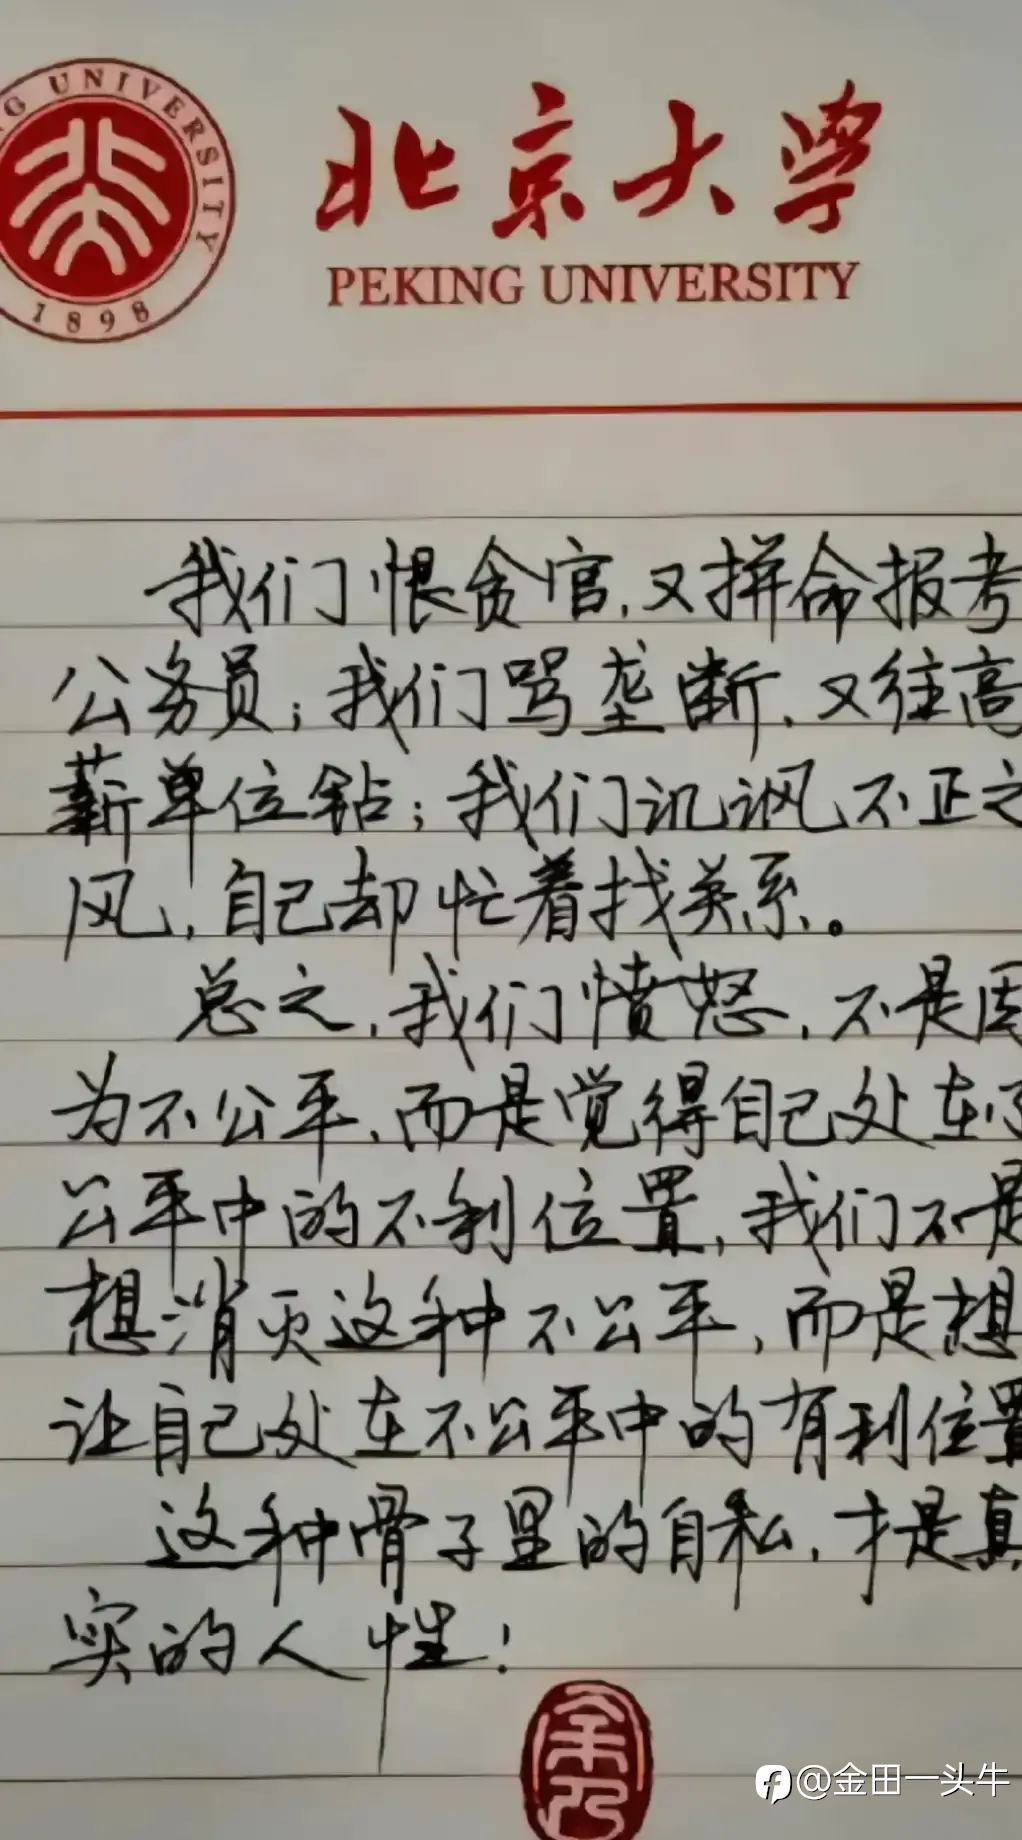 NG UNIVERSITY
1898
北京大学
PEKING UNIVERSITY
我们恨贪官，又拼命报考
公务员；我们骂垄断，又往高
薪单位钻；我们讥讽不正之
风，自己却忙着找关系。
总之，我们愤怒，不是因
为不公平，而是觉得自己处在不
公平中的不利位置，我们不是
想消灭这种不公平，而是想
让自己处在不公平中的有利位置
这种骨子里的自私，才是真
实的人性！
@金田一头牛